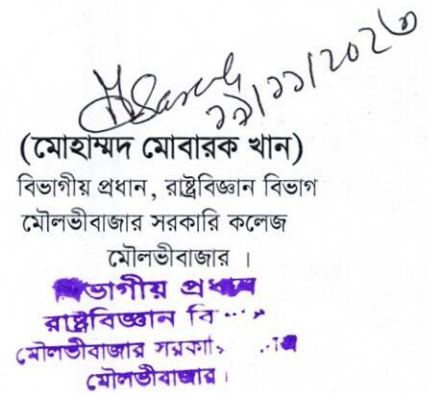 ১৯/১১/২০২৩
(মোহাম্মদ মোবারক খান)
বিভাগীয় প্রধান, রাষ্ট্রবিজ্ঞান বিভাগ
মৌলভীবাজার সরকারি কলেজ
মৌলভীবাজার ।
বিভাগীয় প্রধান
রাষ্ট্রবিজ্ঞান
মৌলভীবাজার
মৌলভীবাজার।